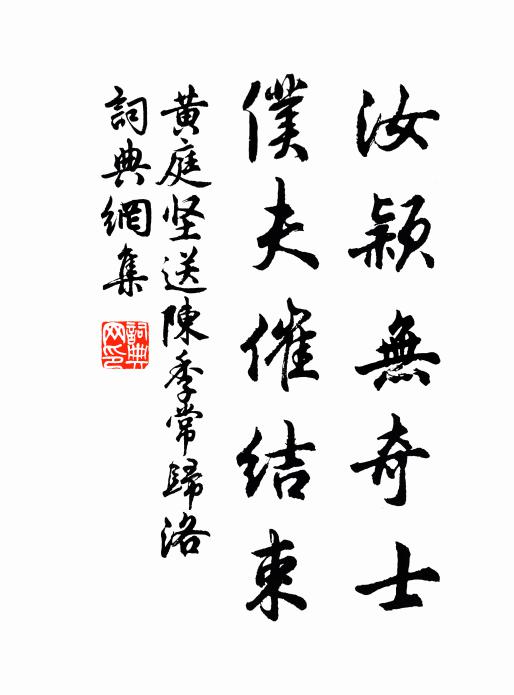 汝潁無奇士
僕夫催結束
黄庭坚送陳季常歸洛
詞典網集
詞典网印